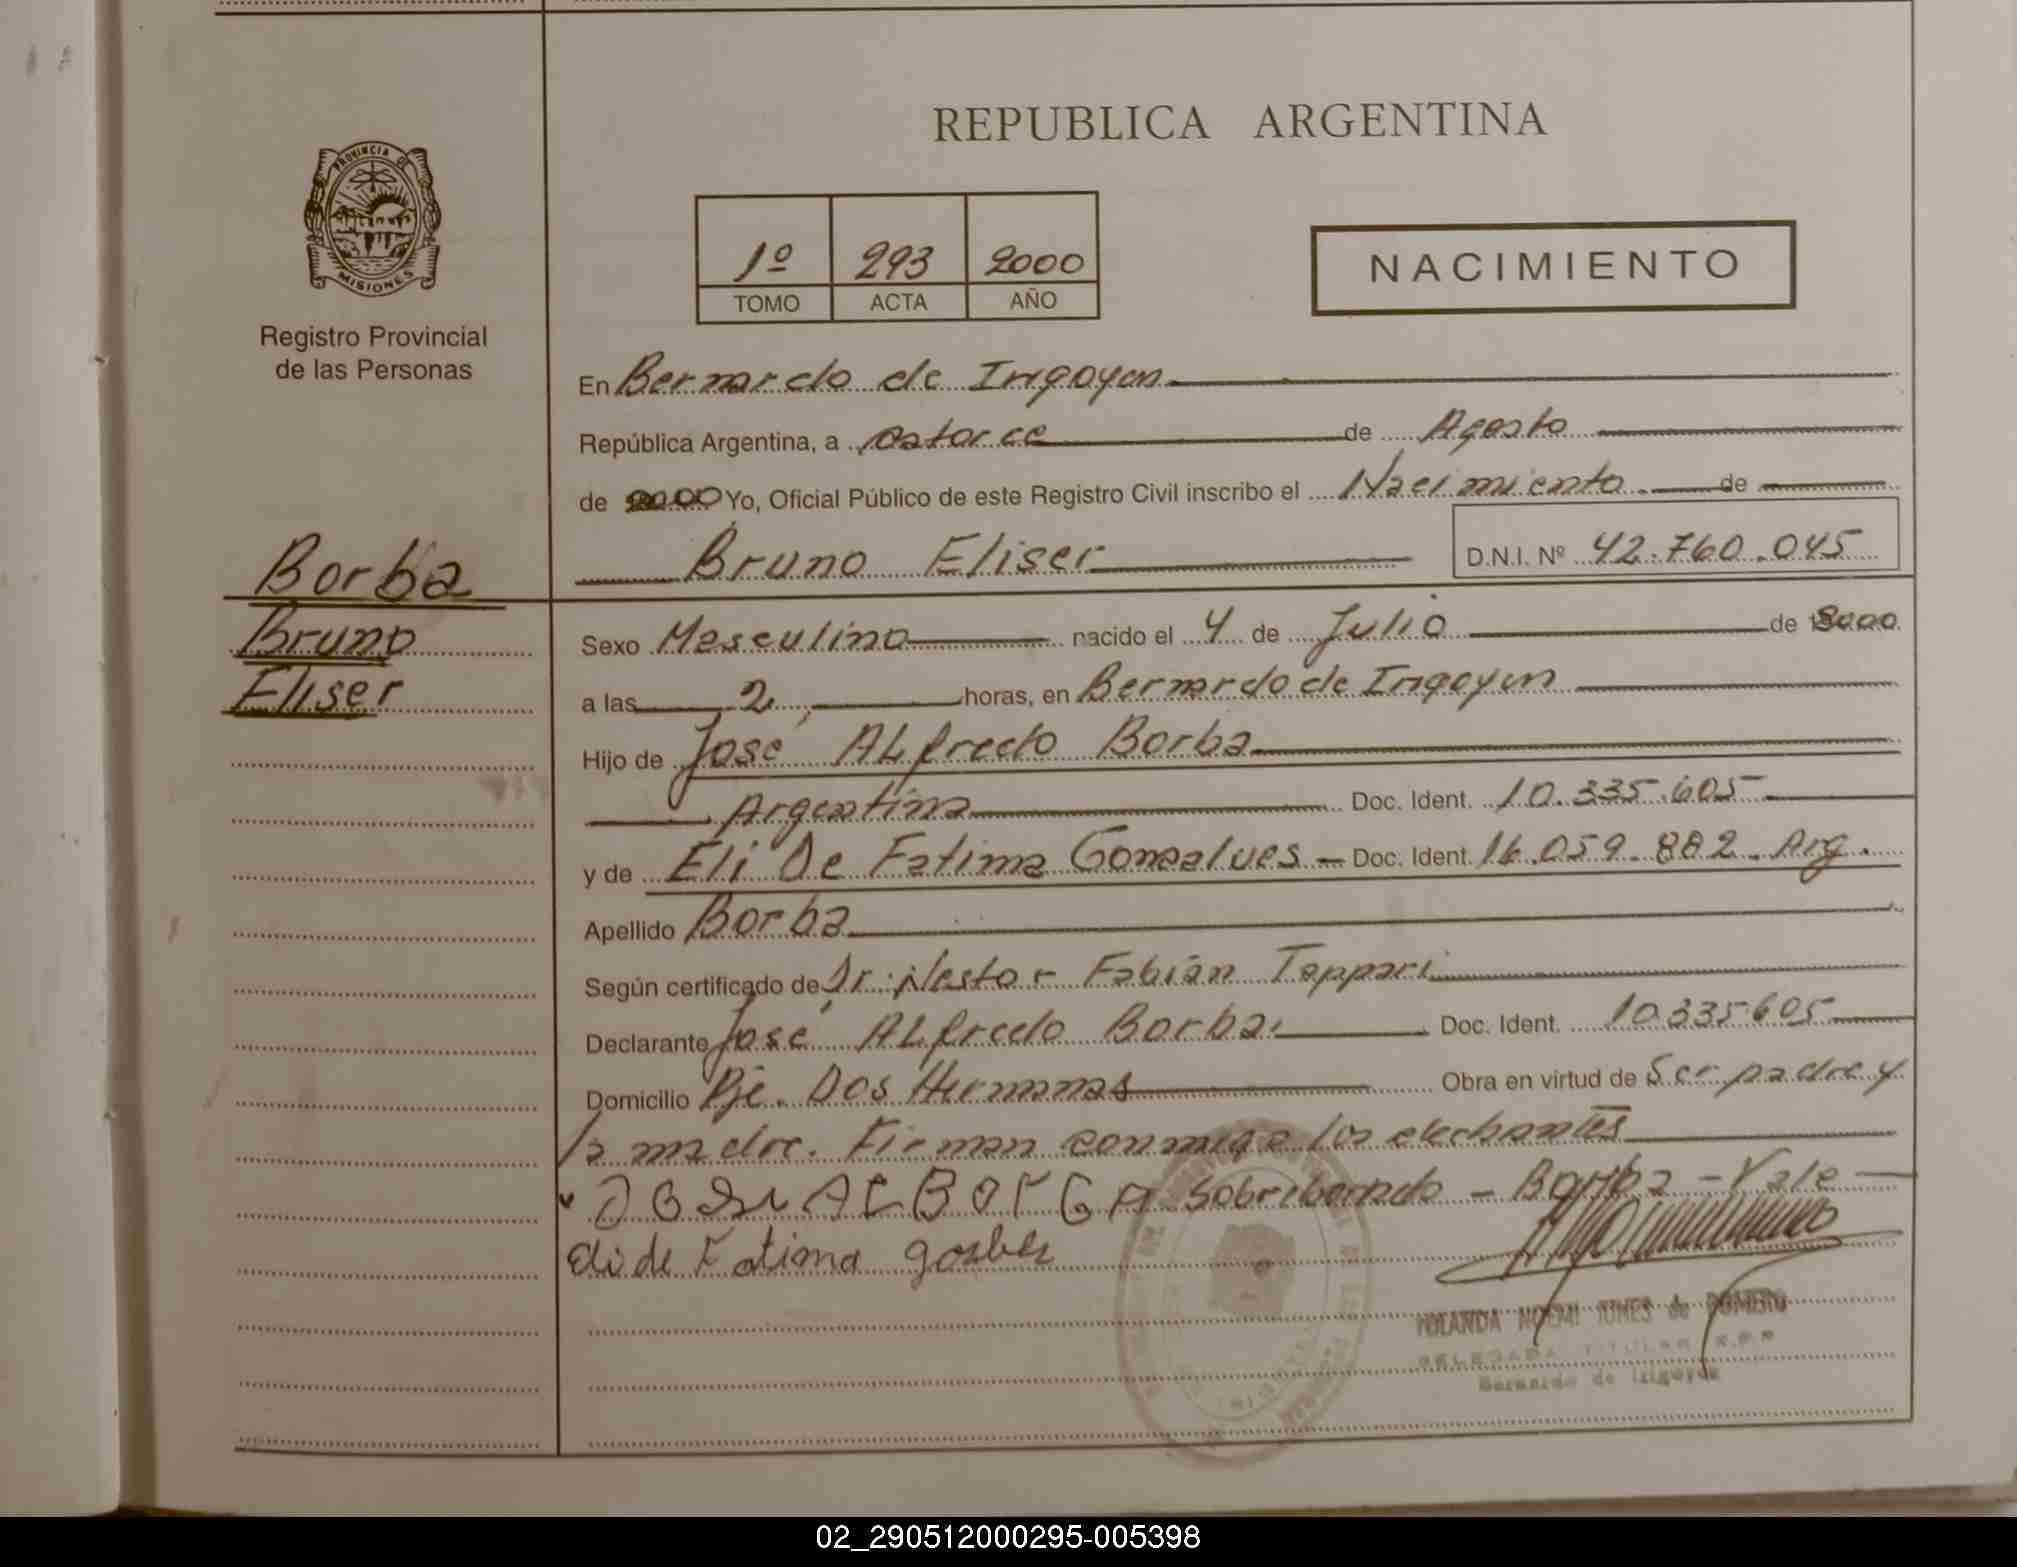 REPUBLICA ARGENTINA
PROVINCIA DE
MISIONES
Registro Provincial
de las Personas
1º 293 2000
TOMO ACTA AÑO
NACIMIENTO
En Bernardo de Irigoyen
República Argentina, a catorce de Agosto
de 2000 Yo, Oficial Público de este Registro Civil inscribo el Nacimiento de
Bruno Eliser D.N.I. Nº 42.760.045
Borba
Bruno
Eliser
Sexo Masculino nacido el 4 de Julio de 2000
a las 2, horas, en Bernardo de Irigoyen
Hijo de José ALfredo Borba
Argentina Doc. Ident. 10.335.605
y de Eli De Fatima Gonsalves - Doc. Ident. 16.059.882. Arg.
Apellido Borba
Según certificado de Dr. Nestor Fabián Tappari
Declarante José ALfredo Borba. Doc. Ident. 10.335605
Domicilio Pje. Dos Hermanas Obra en virtud de Ser padre y
la madre. Firman conmigo los
Sobreborrado - Borba - Vale
de Fatima
YOLANDA NOEMI de ROMERO
DELEGADA TITULAR R.P.P
Bernardo de Irigoyen
02_290512000295-005398